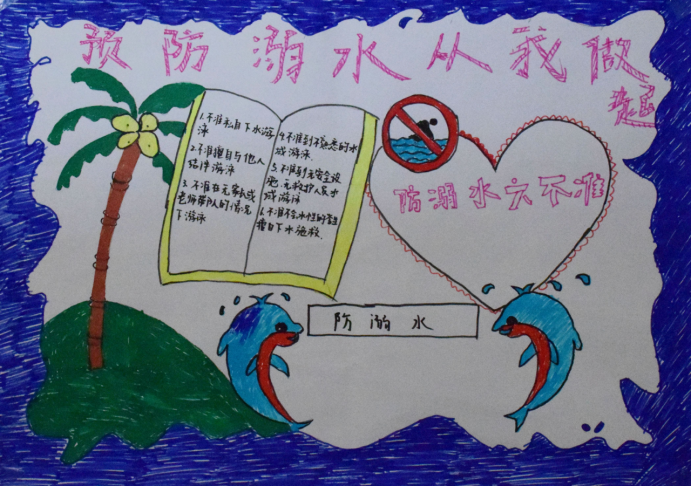 预防溺水从我做
起
1.不准私自下水游
泳
2.不准擅自与他人
结伴游泳
3.不准在无家长或
老师带队的情况
下游泳
4.不准到不熟悉的水
域游泳.
5.不准到无安全设
施.无救护人员水
域游泳
6.不准不会水性的学生
擅自下水施救.
防溺水六不准
防溺水